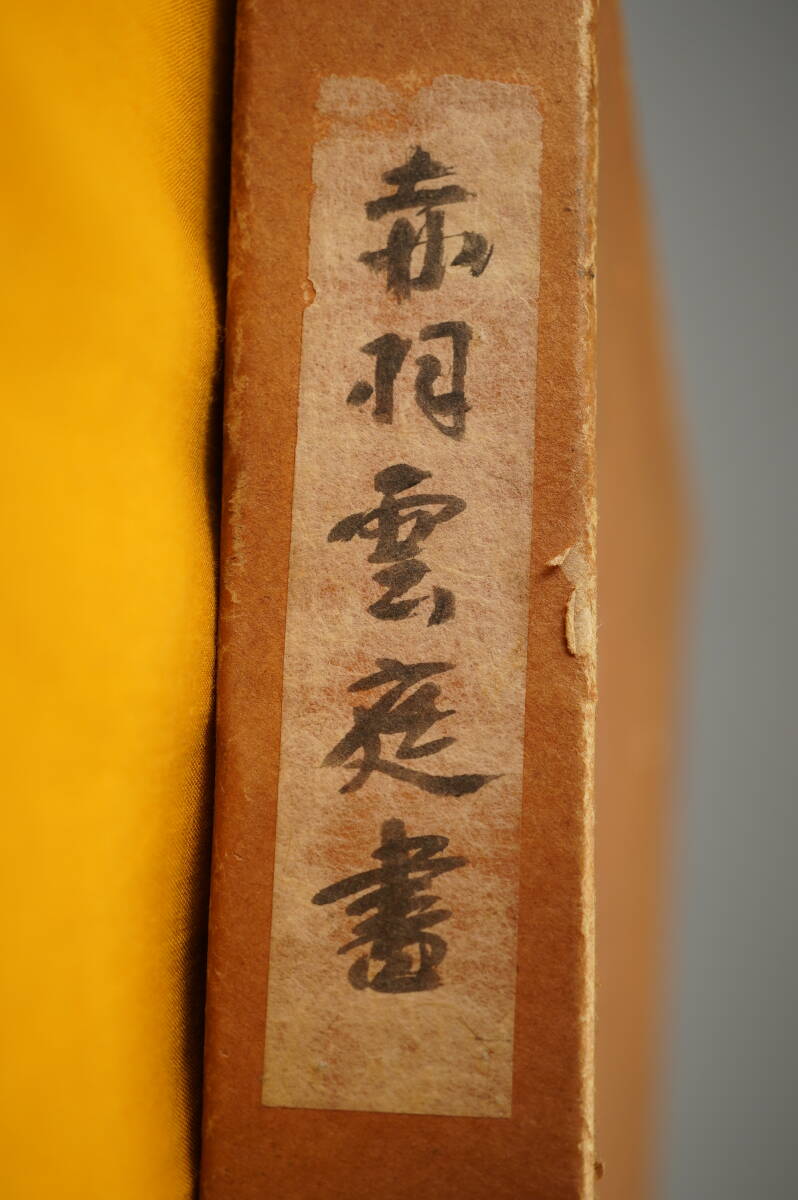 赤羽雲庭書